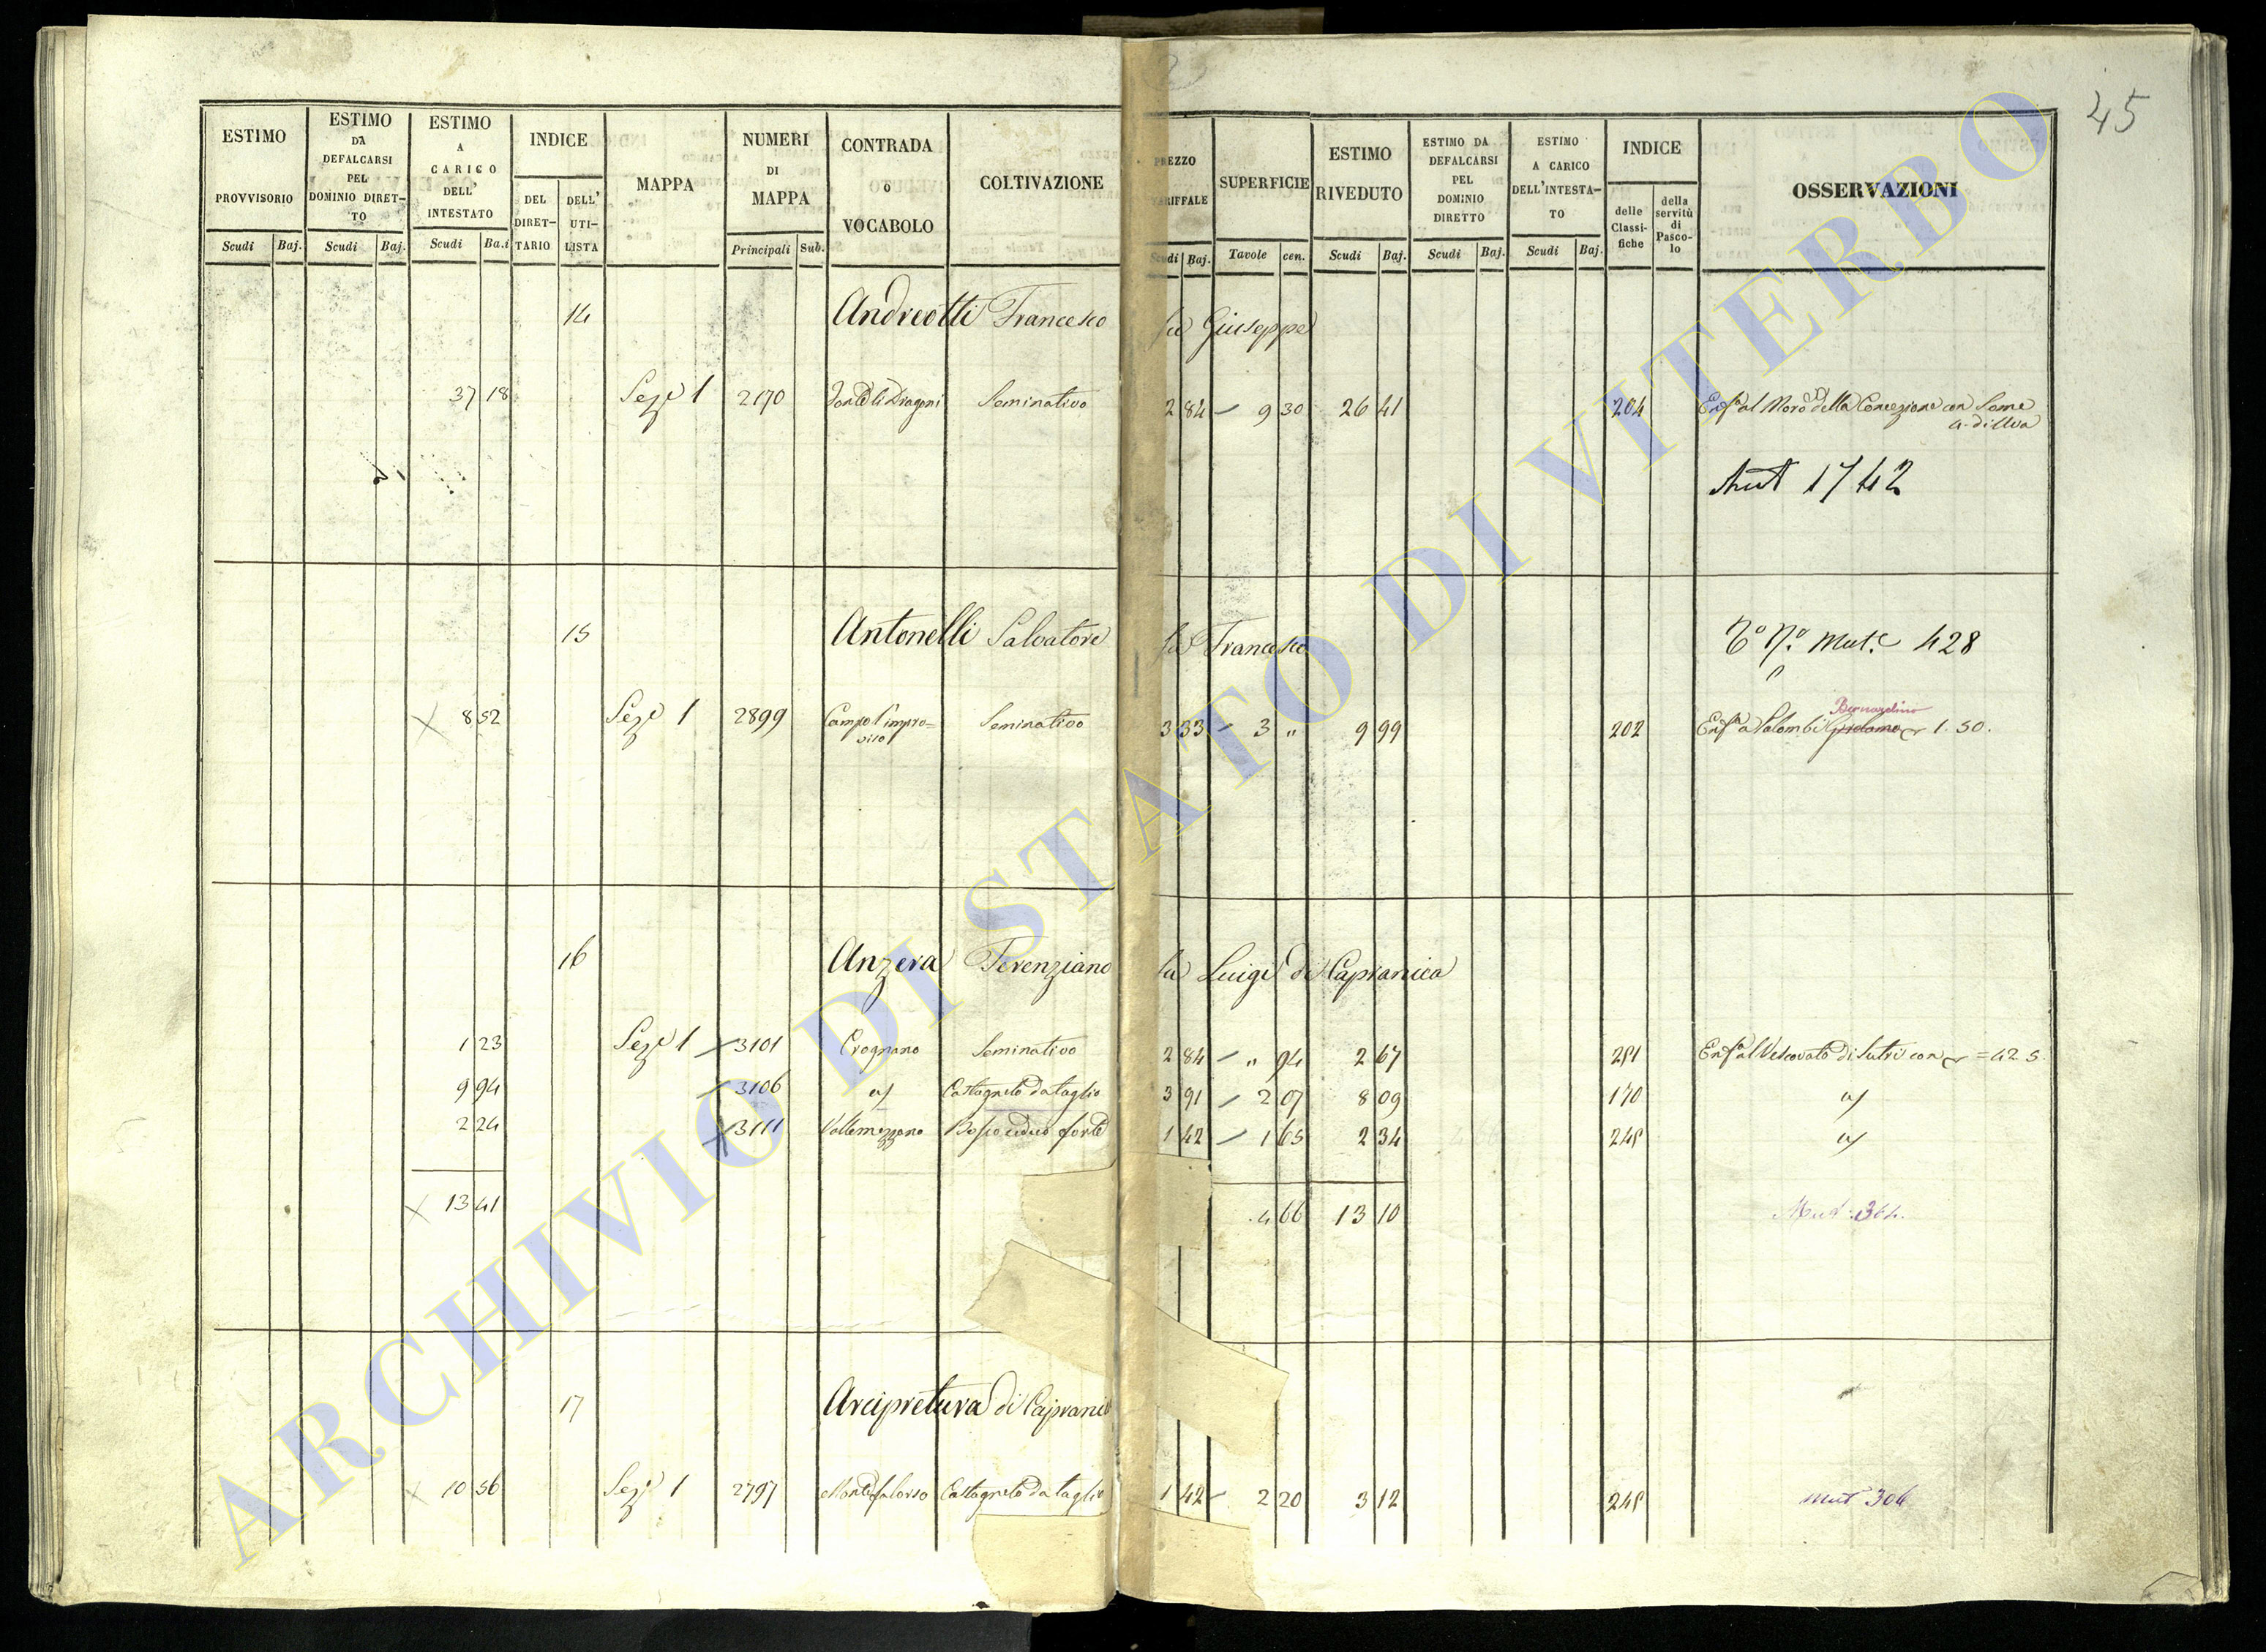 45
ESTIMO PROVVISORIO Scudi Baj.
ESTIMO DA DEFALCARSI PEL DOMINIO DIRETTO Scudi Baj.
ESTIMO A CARICO DELL' INTESTATO Scudi Ba.i
INDICE DEL DIRETTARIO DELL' UTILISTA
MAPPA
NUMERI DI MAPPA Principali Sub.
CONTRADA O VOCABOLO
COLTIVAZIONE
PREZZO TARIFFALE Scudi Baj.
SUPERFICIE Tavole cen.
ESTIMO RIVEDUTO Scudi Baj.
ESTIMO DA DEFALCARSI PEL DOMINIO DIRETTO Scudi Baj.
ESTIMO A CARICO DELL'INTESTATO Scudi Baj.
INDICE delle Classifiche della servitù di Pascolo
OSSERVAZIONI
14 Andreotti Francesco fu Giuseppe
37 18 Sez.e 1 2170 Seminativo 2 84 9 30 26 41 204 della Concezione con Some
4. di Uva
Mut 1742
15 Antonelli Salvatore fu Francesco
Mut.e 428
8 52 Sez.e 1 2899 Campo l'impro- Seminativo 3 33 3 " 9 99 202 Bernardino 1.50.
viso
16 Anzera Terenziano fu Luigi di Capranica
1 23 Sez.e 1 3101 Crognano Seminativo 2 84 " 94 2 67 251 Enf.a al Vescovato di Sutri con = 42 5
9 94 3106 Castagneto da taglio 3 91 2 07 8 09 170
2 24 3111 Vallemezzano Bosco ceduo forte 1 42 1 65 2 34 245
13 41 4 66 13 10
17 Arcipretura di Capranica
10 56 Sez.e 1 2797 Castagneto da taglio 1 42 2 20 3 12 245 Mut 306
ARCHIVIO DI STATO DI VITERBO